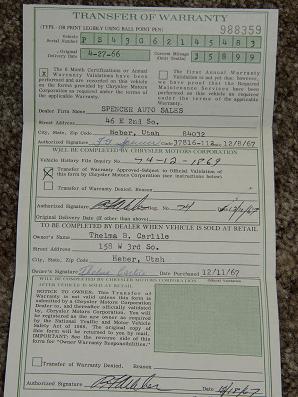 TRANSFER OF WARRANTY
(TYPE - OR PRINT LEGIBLY USING BALL POINT PEN)
988359
Vehicle
Serial Number
Original
Delivery Date 4-27-66
Current Mileage
(Omit Tenths) 35899
X The 6 Month Certifications or Annual
Warranty Validations have been
performed and are recorded on this vehicle
on the form provided by Chrysler Motors
Corporation as required under the terms of
the applicable Warranty.
The First Annual Warranty
Validation is not yet due, however,
Maintenance Services have been
performed on this vehicle as required
by the terms of the applicable
Warranty.
Dealer Firm Name SPENCER AUTO SALES
Street Address 46 E 2nd So.
City, State, Zip Code Heber, Utah 84032
Authorized Signature Date 12/8/67
WILL BE COMPLETED BY CHRYSLER MOTORS CORPORATION
Vehicle History File Inquiry No. 74-12-1869
Transfer of Warranty Approved-Subject to Official Validation of
this form by Chrysler Motors Corporation (see instructions below)
Transfer of Warranty Denied. Reason
Authorized Signature No. 74
Original Delivery Date (If other than above)
TO BE COMPLETED BY DEALER WHEN VEHICLE IS SOLD AT RETAIL
Owner's Name Thelma B. Carlile
Street Address 158 W 3rd So.
City, State, Zip Code Heber, Utah
Owner's Signature Thelma Carlile Date Purchased 12/11/67
WILL BE COMPLETED BY CHRYSLER MOTORS CORPORATION
AFTER VEHICLE IS SOLD AT RETAIL
Official Validation
NOTICE TO OWNER: This Transfer of
Warranty is not valid unless this form is
submitted by a Chrysler Motors Corporation
Dealer to, and thereafter officially validated
by, Chrysler Motors Corporation. You will
be registered as the new owner as required
by the National Traffic and Motor Vehicle
Safety Act of 1966. The original copy of
this form will be returned to you by mail.
IMPORTANT: See the reverse side of this
form for "Owner Warranty Responsibilities."
Transfer of Warranty Denied. Reason
Authorized Signature Date